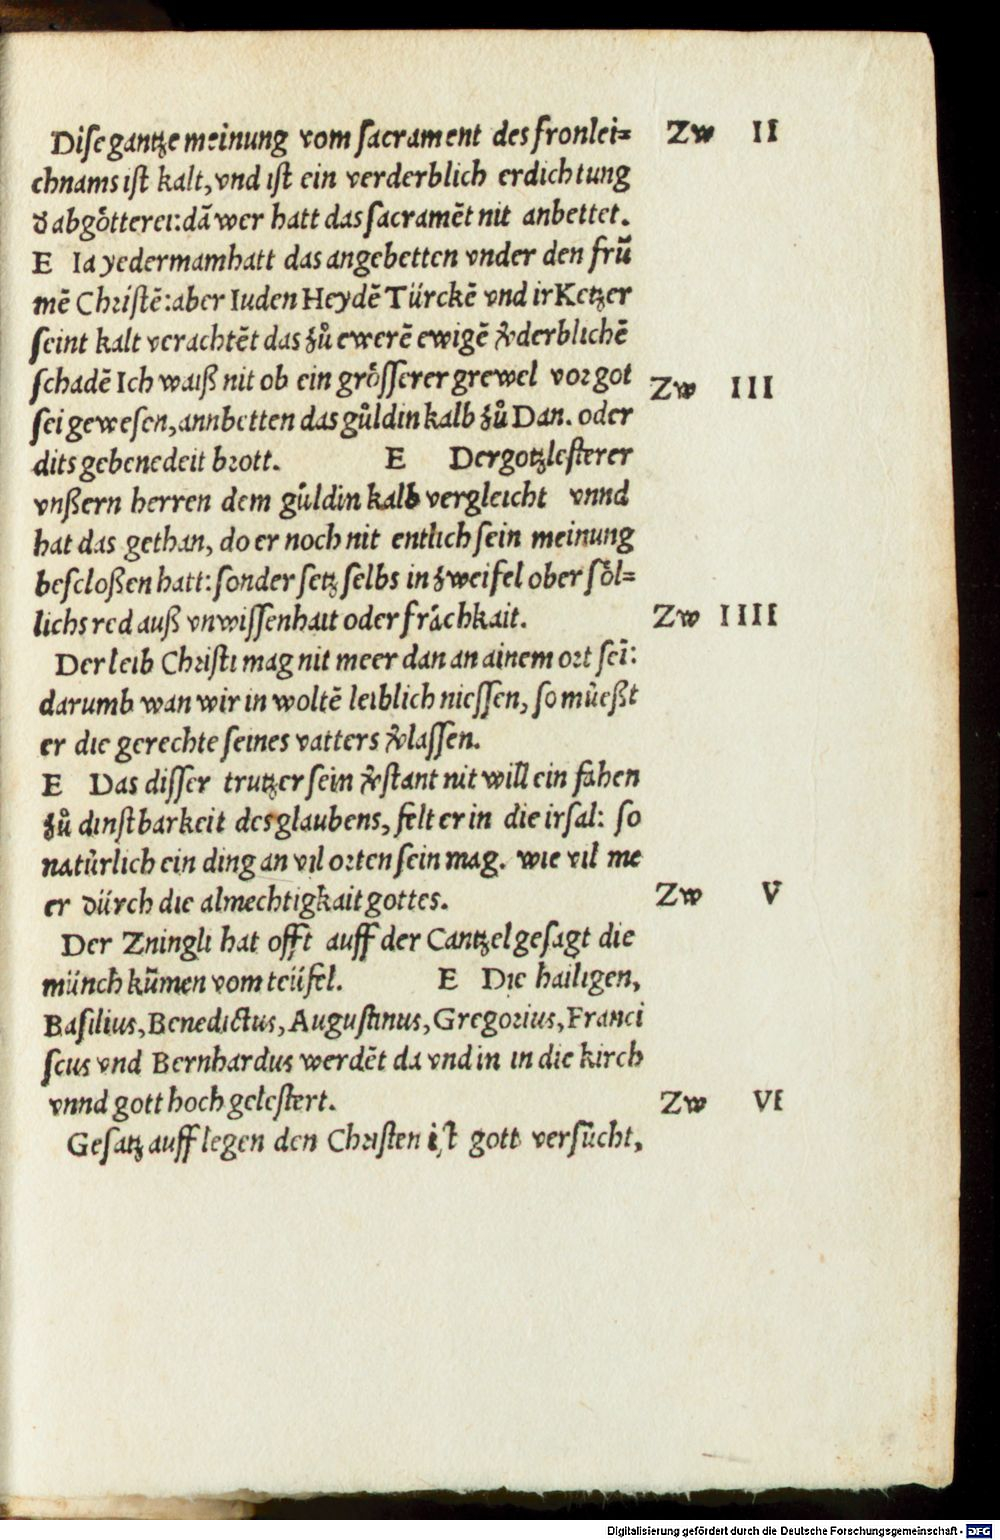 Diſe gantze meinung vom ſacrament des fronlei= Zw II
chnams iſt kalt, vnd iſt ein verderblich erdichtung
d abgötterei: dā wer hatt das ſacramēt nit anbettet.
E Ia yedermamhatt das angebetten vnder den frū
mē Chriſtē: aber Iuden Heydē Türckē vnd ir Ketzer
ſeint kalt verachtēt das zů ewerē ewigē v̄derblichē
ſchadē Ich waiß nit ob ein gröſſerer grewel vor got Zw III
ſei geweſen, annbetten das gůldin kalb zů Dan. oder
dits gebenedeit brott. E Der gotzleſterer
vnßern herren dem gůldin kalb vergleicht vnnd
hat das gethan, do er noch nit entlich ſein meinung
beſcloßen hatt: ſonder ſetz ſelbs in zweifel ober ſöl=
lichs red auß vnwiſſenhait oder frächkait. Zw IIII
Der leib Chriſti mag nit meer dan an ainem ort ſeī:
darumb wan wir in woltē leiblich nieſſen, ſo můeßt
er die gerechte ſeines vatters v̄laſſen.
E Das diſſer trutzer ſein v̄ſtant nit will ein fahen
zů dinſtbarkeit des glaubens, felt er in die irſal: ſo
natůrlich ein ding an vil orten ſein mag. wie vil me
er dürch die almechtigkait gottes. Zw V
Der Zningli hat offt auff der Cantzel geſagt die
münch kūmen vom teüfel. E Die hailigen,
Baſilius, Benedictus, Auguſtinus, Gregorius, Franci
ſcus vnd Bernhardus werdēt da vnd in in die kirch
vnnd gott hoch geleſtert. Zw VI
Geſatz auff legen den Chriſten iſt gott verſůcht,
Digitalisierung gefördert durch die Deutsche Forschungsgemeinschaft - DFG